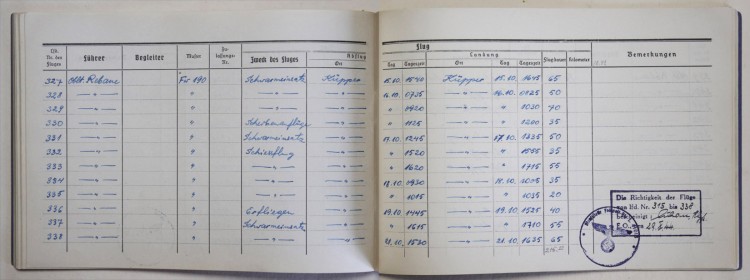 Flug
Lfd. Nr. des Fluges Führer Begleiter Muster Zulassungs-Nr. Zweck des Fluges Abflug Landung Flugdauer Kilometer Bemerkungen
Ort Tag Tageszeit Ort Tag Tageszeit
327 Rebane Fw 190 Schwarmeinsatz Küpper 15.10. 1540 Küpper 15.10. 1645 65
328 — " — " — " — — " — 16.10. 0735 — " — 16.10. 0825 50
329 — " — " — " — — " — " 0920 — " — " 1030 70
330 — " — " — " — " 1125 — " — " 1200 35
331 — " — " Schwarmeinsatz — " — 17.10. 1245 — " — 17.10. 1335 50
332 — " — " Schießflug — " — " 1520 — " — " 1555 35
333 — " — " — " — — " — " 1620 — " — " 1715 55
334 — " — " — " — — " — 18.10. 0930 — " — 18.10. 1005 35
335 — " — " — " — — " — " 1015 — " — " 1035 20
336 — " — " — " — 19.10. 1445 — " — 19.10. 1525 40
337 — " — " Schwarmeinsatz — " — " 1615 — " — " 1710 55
338 — " — " — " — — " — 21.10. 1530 — " — 21.10. 1635 65
Die Richtigkeit der Flüge
von lfd. Nr. 315 bis 338
bescheinigt
E.O., den